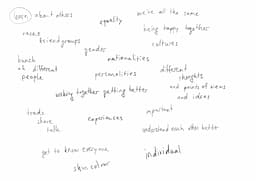 learn about others
equality
we're all the same
races
friend groups
being happy together
gender
cultures
bunch of different people
nationalities
personalities
different thoughts and points of views and ideas
working together getting better
share
talk
experiences
important
understand each other better
get to know everyone
individual
skin colour